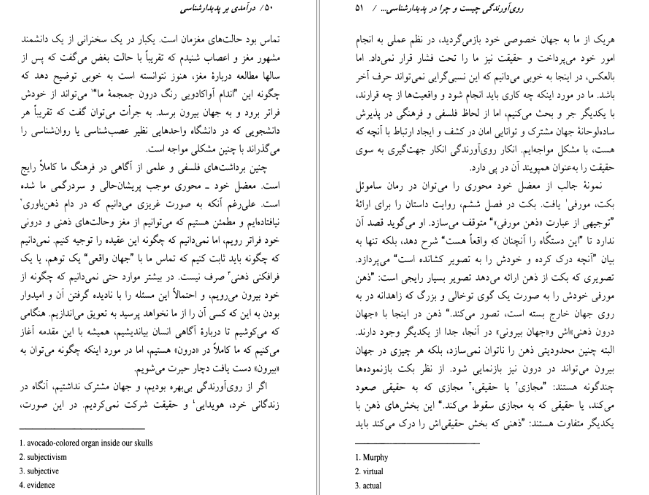 ۵۰/ درآمدی بر پدیدارشناسی
تماس بود حالت‌های مغزمان است. یکبار در یک سخنرانی از یک دانشمند
مشهور مغز و اعصاب شنیدم که تقریباً با حالت بغض می‌گفت که پس از
سالها مطالعه دربارهٔ مغز، هنوز نتوانسته است به خوبی توضیح دهد که
چگونه این "اندام آواکادویی رنگ درون جمجمهٔ ما"¹ می‌تواند از خودش
فراتر برود و به جهان بیرون برسد. به جرأت می‌توان گفت که تقریباً هر
دانشجویی که در دانشگاه واحدهایی نظیر عصب‌شناسی یا روان‌شناسی را
می‌گذراند با چنین مشکلی مواجه است.
چنین برداشت‌های فلسفی و علمی از آگاهی در فرهنگ ما کاملاً رایج
است. معضل خود ـ محوری موجب پریشان‌حالی و سردرگمی ما شده
است. علی‌رغم آنکه به صورت غریزی می‌دانیم که در دام ذهن‌باوری²
نیافتاده‌ایم و مطمئن هستیم که می‌توانیم از مغز وحالت‌های ذهنی و درونی
خود فراتر رویم، اما نمی‌دانیم که چگونه این عقیده را توجیه کنیم. نمی‌دانیم
که چگونه باید ثابت کنیم که تماس ما با "جهان واقعی" یک توهم، یا یک
فرافکنی ذهنی³ صرف نیست. در بیشتر موارد حتی نمی‌دانیم که چگونه از
خود بیرون می‌رویم، و احتمالاً این مسئله را با نادیده گرفتن آن و امیدوار
بودن به این که کسی آن را از ما نخواهد پرسید به تعویق می‌اندازیم. هنگامی
که می‌کوشیم تا دربارهٔ آگاهی انسان بیاندیشیم، همیشه با این مقدمه آغاز
می‌کنیم که ما کاملاً در «درون» هستیم، اما در مورد اینکه چگونه می‌توان به
«بیرون» دست یافت دچار حیرت می‌شویم.
اگر از روی‌آورندگی بی‌بهره بودیم، و جهان مشترک نداشتیم، آنگاه در
زندگانی خرد، هویدایی⁴ و حقیقت شرکت نمی‌کردیم. در این صورت،
1. avocado-colored organ inside our skulls
2. subjectivism
3. subjective
4. evidence
روی‌آورندگی چیست و چرا در پدیدارشناسی... / ۵۱
هریک از ما به جهان خصوصی خود بازمی‌گردید، در نظم عملی به انجام
امور خود می‌پرداخت و حقیقت نیز ما را تحت فشار قرار نمی‌داد. اما
بالعکس، در اینجا به خوبی می‌دانیم که این نسبی‌گرایی نمی‌تواند حرف آخر
باشد. ما در مورد اینکه چه کاری باید انجام شود و واقعیت‌ها از چه قرارند،
با یکدیگر جر و بحث می‌کنیم، اما از لحاظ فلسفی و فرهنگی در پذیرش
ساده‌لوحانهٔ جهان مشترک و توانایی امان در کشف و ایجاد ارتباط با آنچه که
هست، با مشکل مواجه‌ایم. انکار روی‌آورندگی انکار جهت‌گیری به سوی
حقیقت را به‌عنوان همپویند آن در پی دارد.
نمونهٔ جالب از معضل خود محوری را می‌توان در رمان ساموئل
بکت، مورفی¹ یافت. بکت در فصل ششم، روایت داستان را برای ارائهٔ
"توجیهی از عبارت «ذهن مورفی»" متوقف می‌سازد. او می‌گوید قصد آن
ندارد تا "این دستگاه را آنچنان که واقعاً هست" شرح دهد، بلکه تنها به
بیان "آنچه درک کرده و خودش را به تصویر کشانده است" می‌پردازد.
تصویری که بکت از ذهن ارائه می‌دهد تصویر بسیار رایجی است: "ذهن
مورفی خودش را به صورت یک گوی توخالی و بزرگ که زاهدانه در به
روی جهان خارج بسته است، تصور می‌کند." ذهن در اینجا با «جهان
درون ذهنی»اش و«جهان بیرونی» در آنجا، جدا از یکدیگر وجود دارند.
البته چنین محدودیتی ذهن را ناتوان نمی‌سازد، بلکه هر چیزی در جهان
بیرون می‌تواند در درون نیز بازنمایی شود. از نظر بکت بازنموده‌ها
چندگونه هستند: "مجازی² یا حقیقی،³ مجازی که به حقیقی صعود
می‌کند، یا حقیقی که به مجازی سقوط می‌کند." این بخش‌های ذهن با
یکدیگر متفاوت هستند: "ذهنی که بخش حقیقی‌اش را درک می‌کند باید
1. Murphy
2. virtual
3. actual